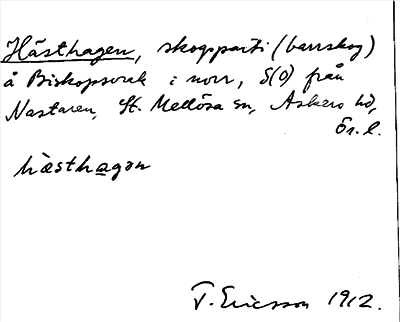 Hästhagen, skogsparti (barrskog)
å Biskopsvrak i norr, S(O) från
Nastaren, St. Mellösa sn, Askers hd,
Ör. l.
hästhagən
T. Ericsson 1912.